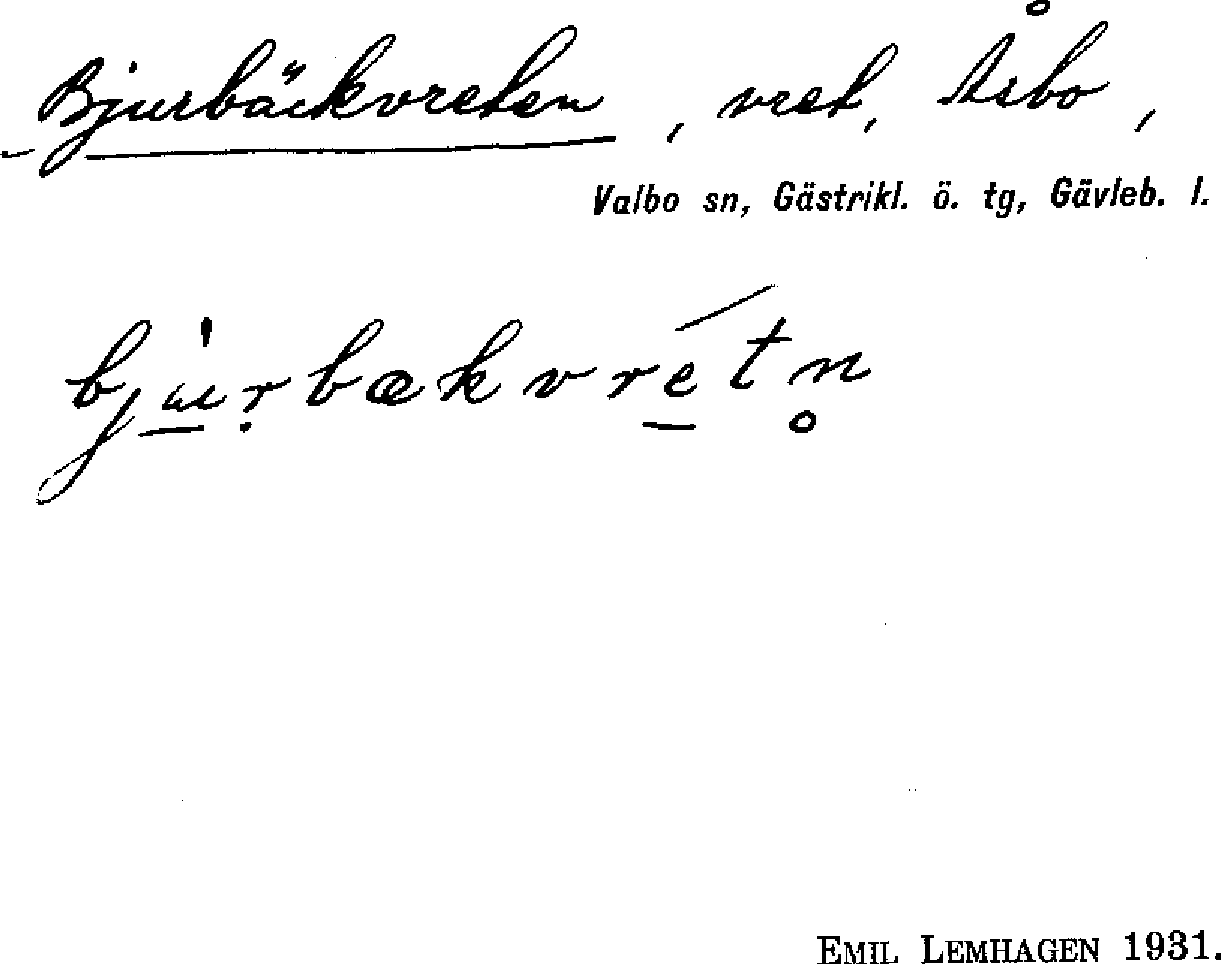 Bjurbäckvreten, vret, Åsbo,
Valbo sn, Gästrikl. ö. tg, Gävleb. l.
bju̠̍ṛbækvré̠tn̥
EMIL LEMHAGEN 1931.